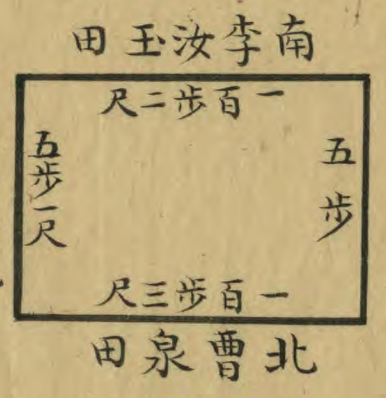 南李汝玉田
一百步二尺
五步
五步一尺
一百步三尺
北曹泉田